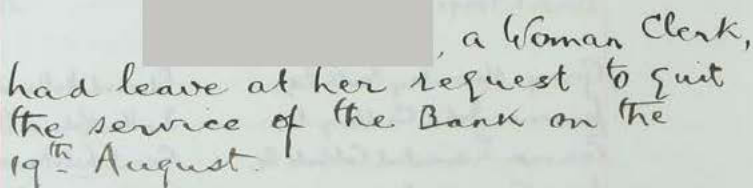 , a Woman Clerk,
had leave at her request to quit
the service of the Bank on the
19th August.